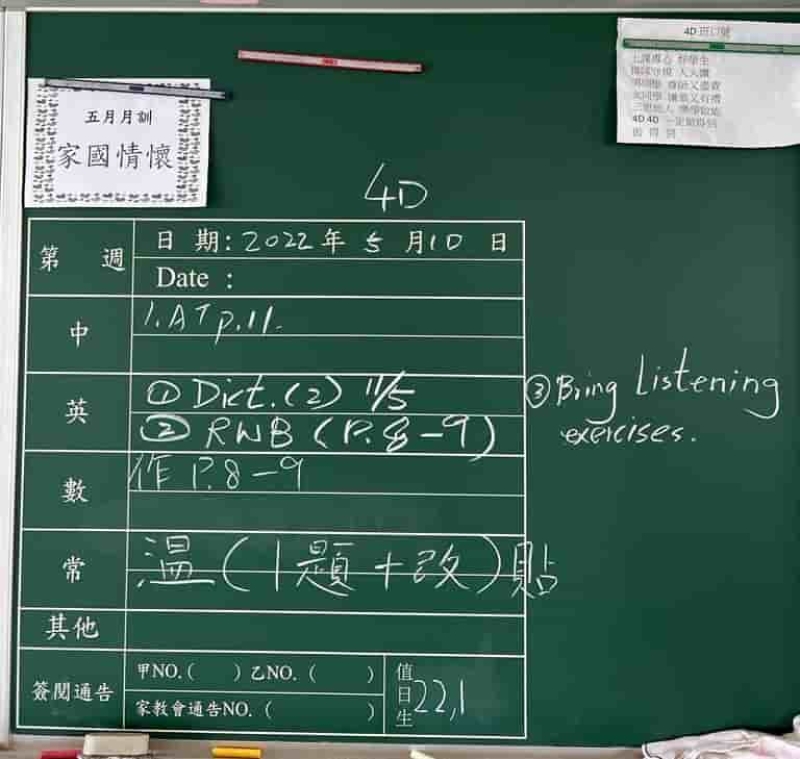 4D 班口號
五月月訓
家國情懷
4D
第 週
日 期: 2022 年 5 月 10 日
Date :
中
1. AT p.11.
英
① Dict. (2) 11/5
② RWB (P. 8-9)
③ Bring Listening
exercises.
數
作 P. 8-9
常
溫 (1題+改) 貼
其他
簽閱通告
甲NO.( ) 乙NO. ( )
家教會通告NO. ( )
值日生
22,1